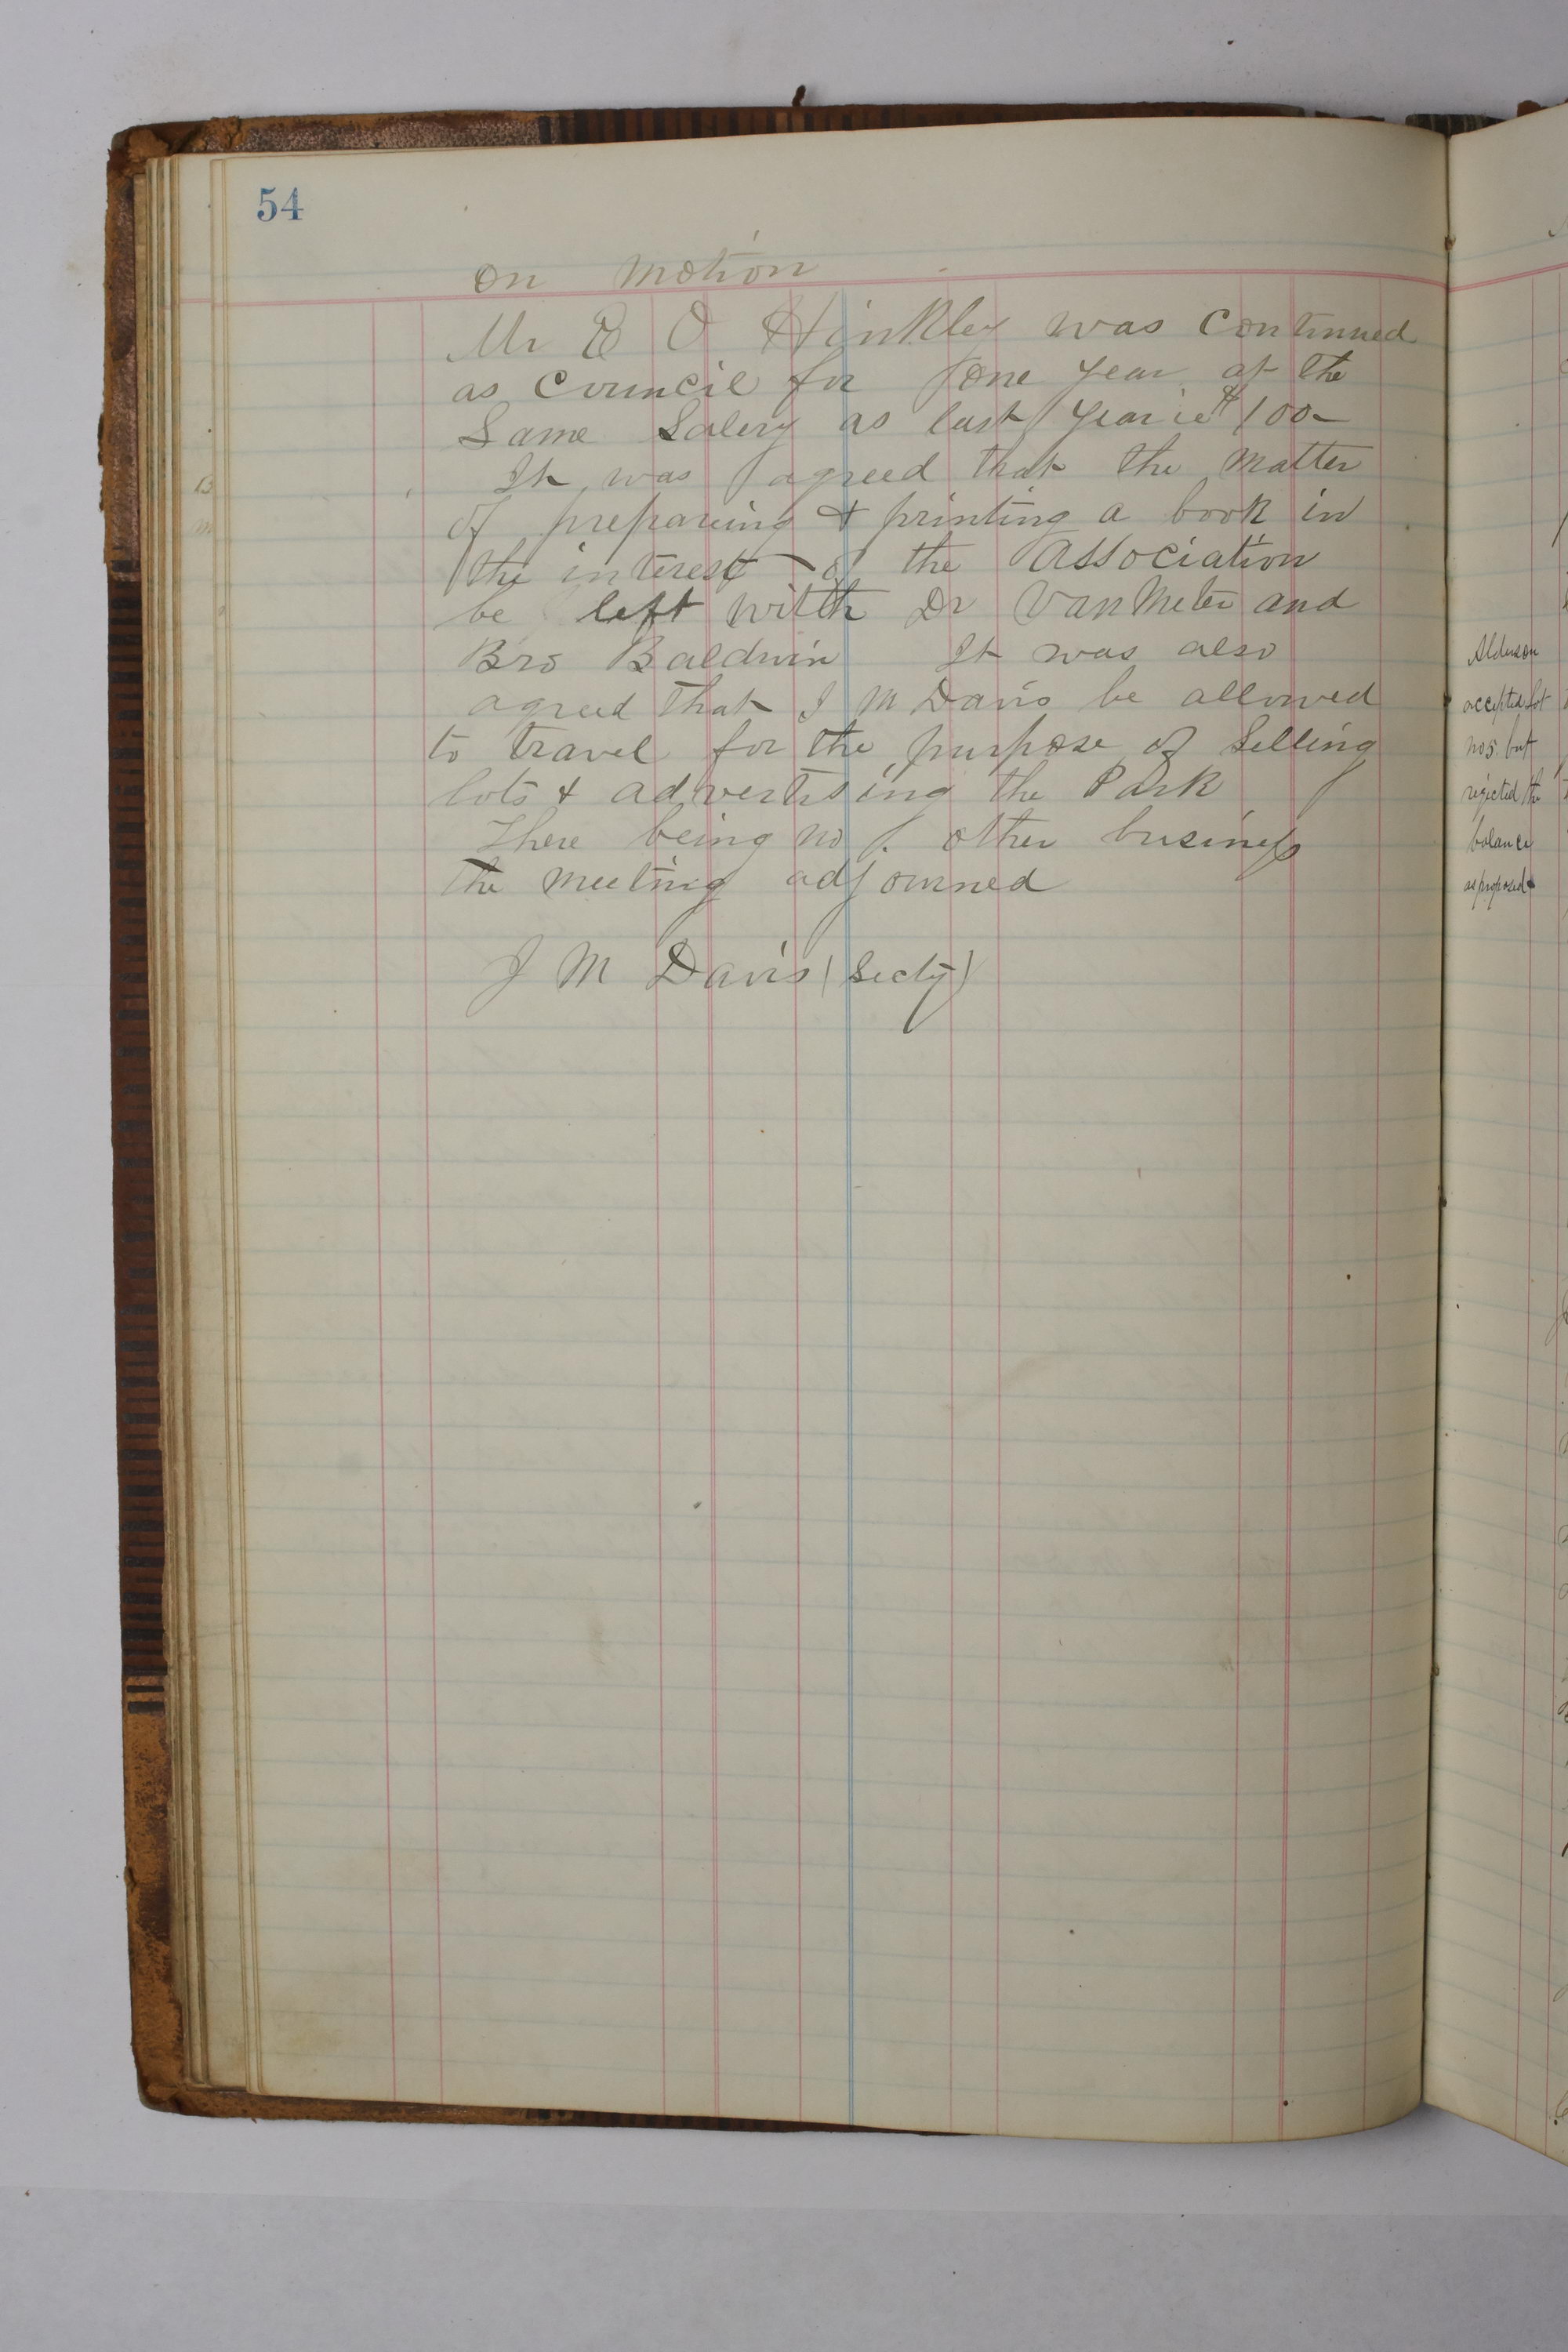 54
on motion
Mr E O Hinkley was continued
as Council for one year at the
Same Salery as last year ie $100-
It was agreed that the matter
of prepareing & printing a book in
the interest of the Association
be left with Dr Van Meter and
Bro Baldwin It was also
agreed that J M Davis be allowed
to travel for the purpose of Selling
lots & advertising the Park
There being no other business
the meeting adjourned
J M Davis (Secty)
Alderson
accepted lot
no 5. but
rejected the
balance
as proposed